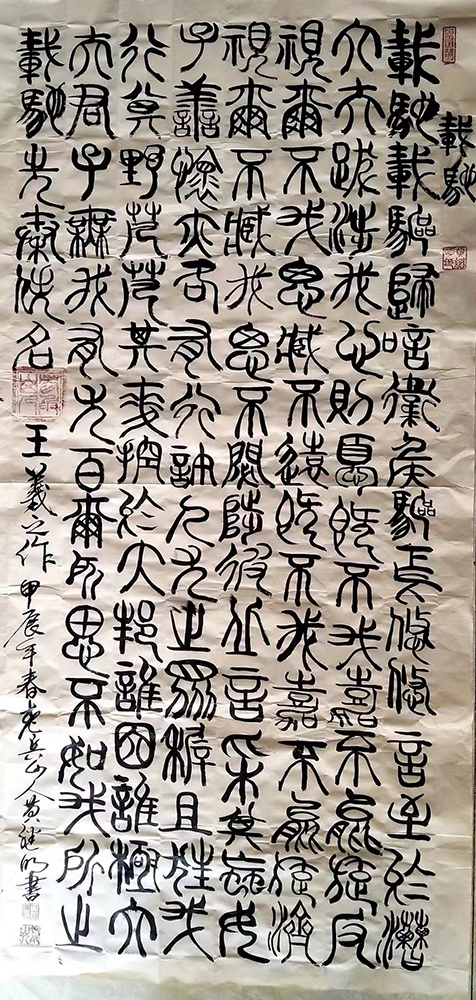 載馳
載馳載驅歸唁衛侯驅馬悠悠言至於漕
大夫跋涉我心則憂既不我嘉不能旋反
視爾不我思臧不遠既不我嘉不能旋濟
視爾不臧我思不閟陟彼丘言采其蝱女
子善懷亦各有行許人尤之眾穉且狂我
行其野芃芃其麥控於大邦誰因誰極大
夫君子無我有尤百爾所思不如我所之
載馳先秦佚名 王羲之作 甲辰年春 山人黄 书